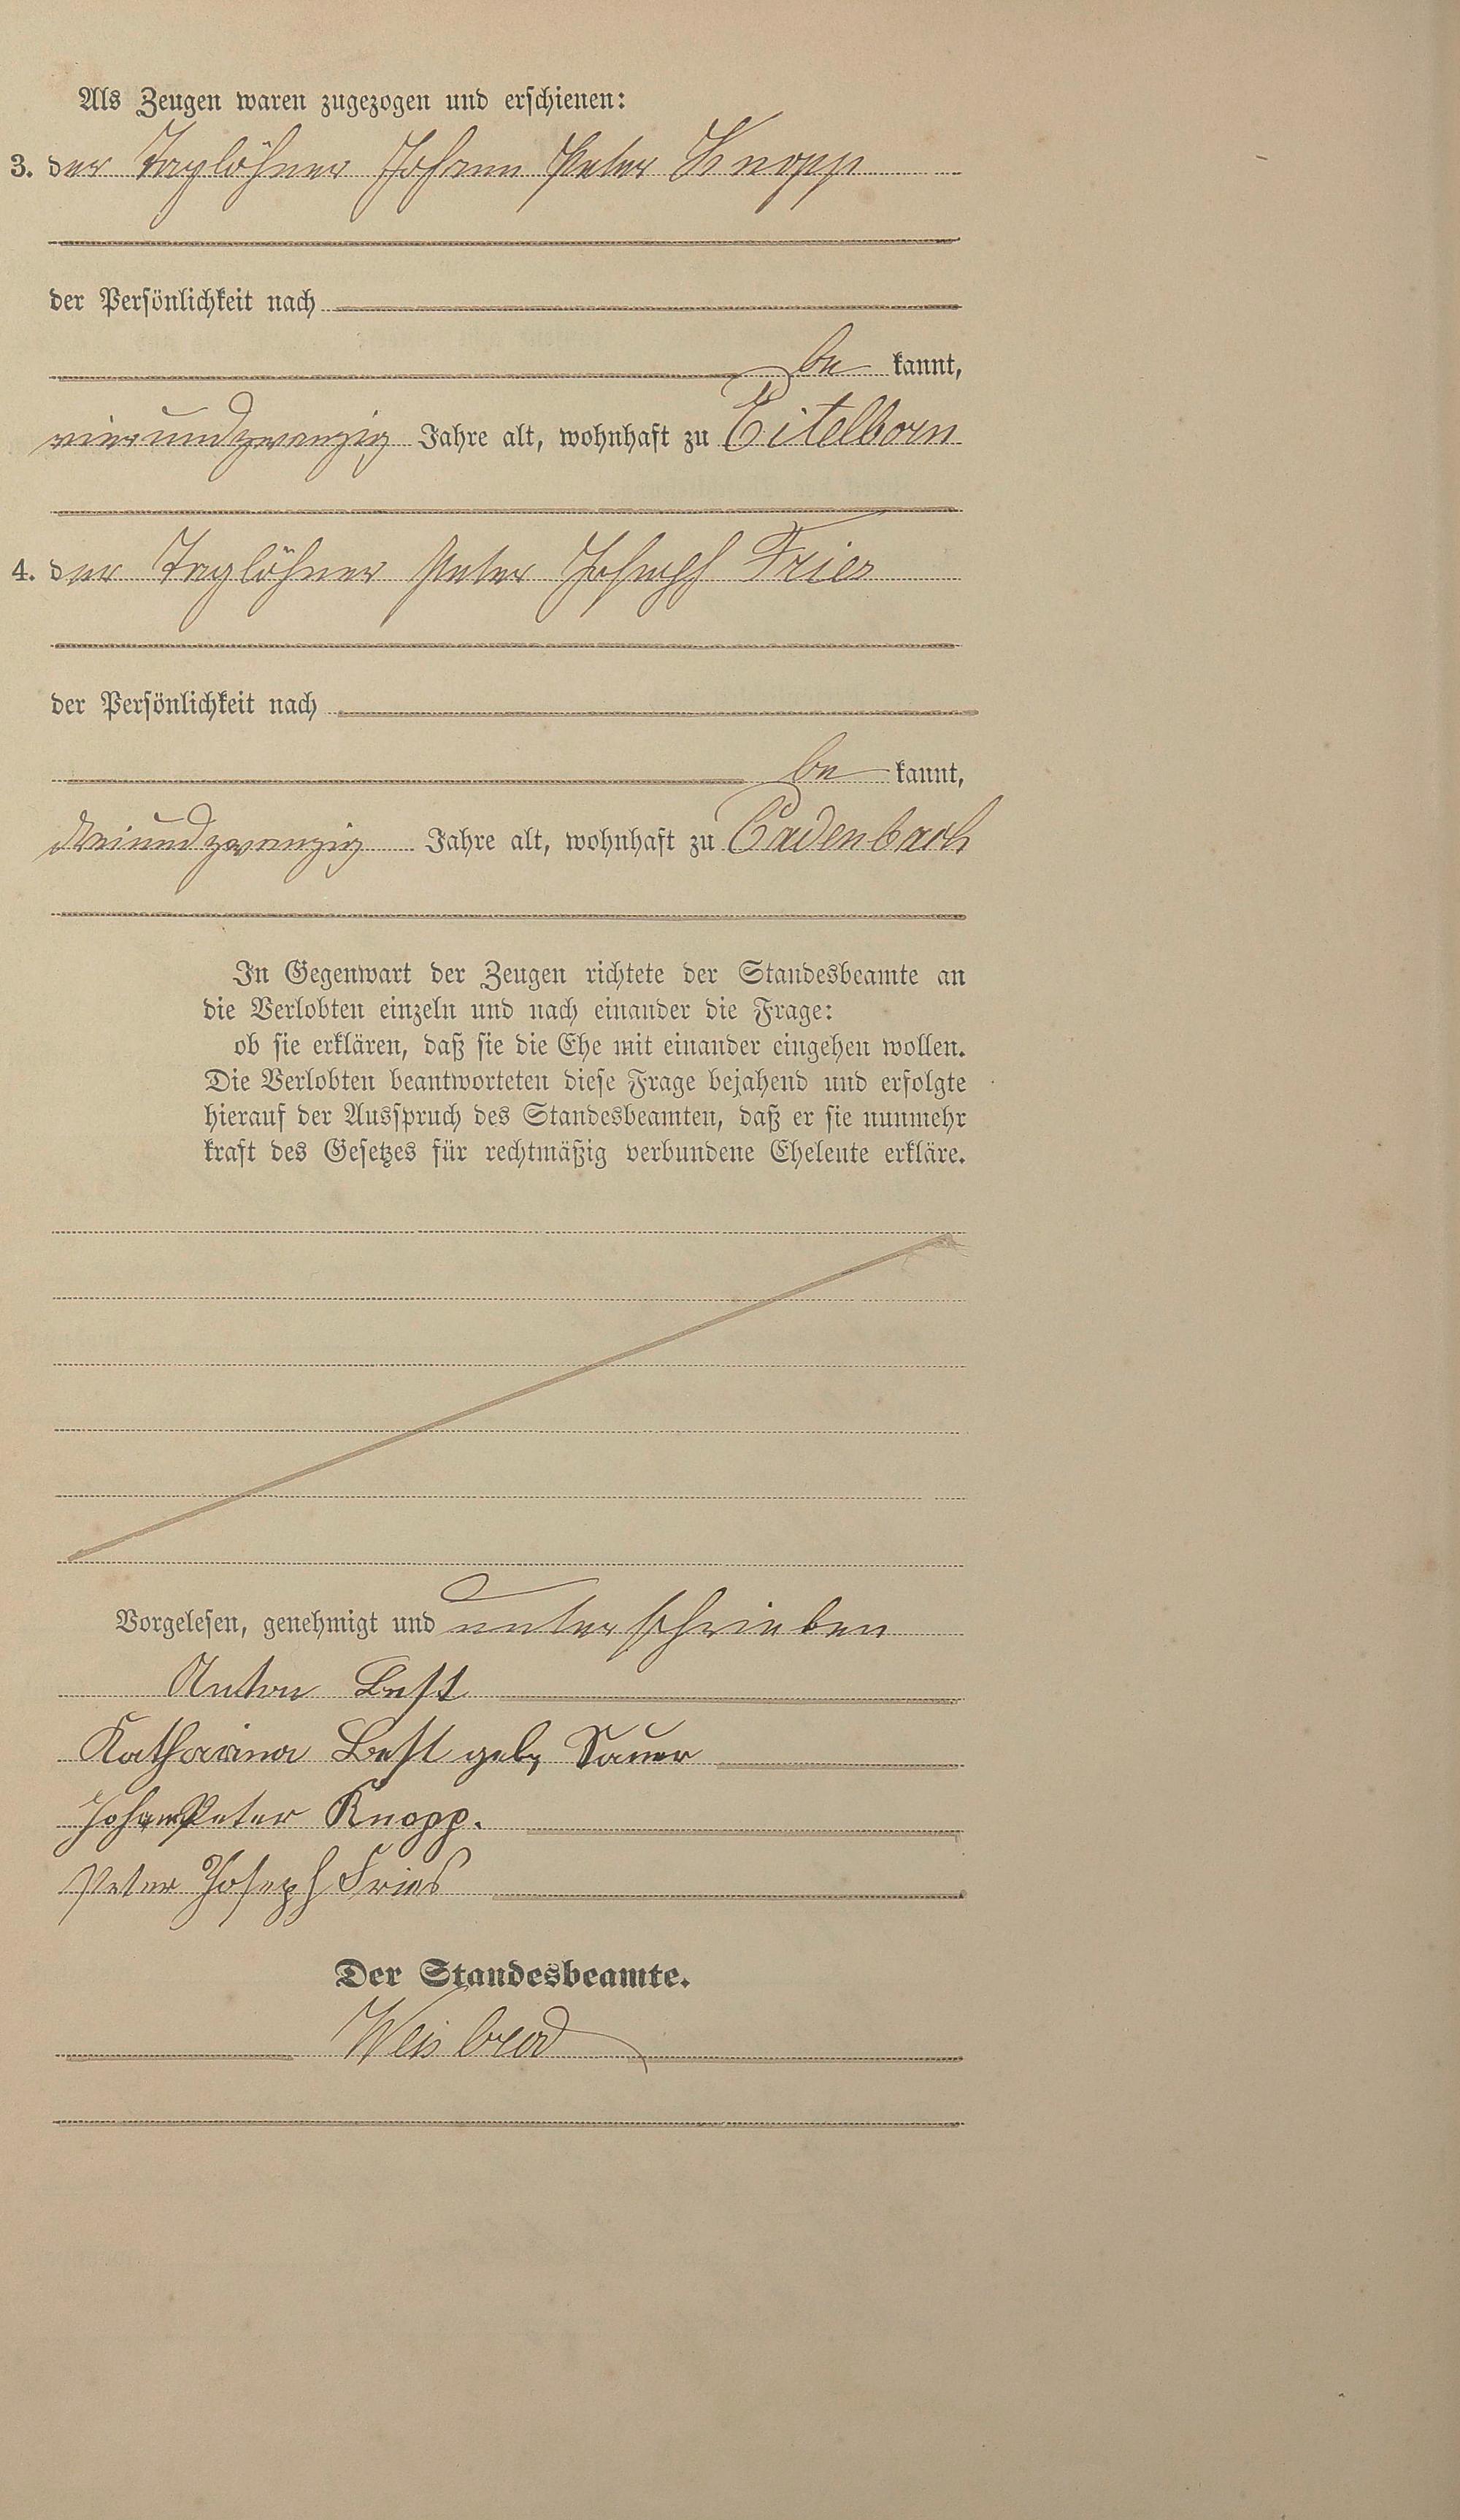 Als Zeugen waren zugezogen und erschienen:
3. der Taglöhner Johann Peter Knopp
der Persönlichkeit nach
be kannt,
vierundzwanzig Jahre alt, wohnhaft zu Eitelborn
4. der Taglöhner Peter Joseph Fries
der Persönlichkeit nach
be kannt,
dreiundzwanzig Jahre alt, wohnhaft zu Cadenbach
In Gegenwart der Zeugen richtete der Standesbeamte an
die Verlobten einzeln und nach einander die Frage:
ob sie erklären, daß sie die Ehe mit einander eingehen wollen.
Die Verlobten beantworteten diese Frage bejahend und erfolgte
hierauf der Ausspruch des Standesbeamten, daß er sie nunmehr
kraft des Gesetzes für rechtmäßig verbundene Eheleute erkläre.
Vorgelesen, genehmigt und unterschrieben
Anton Best
Katharina Best geb. Sauer
Johann Peter Knopp.
Peter Joseph Fries
Der Standesbeamte.
Weisbrod